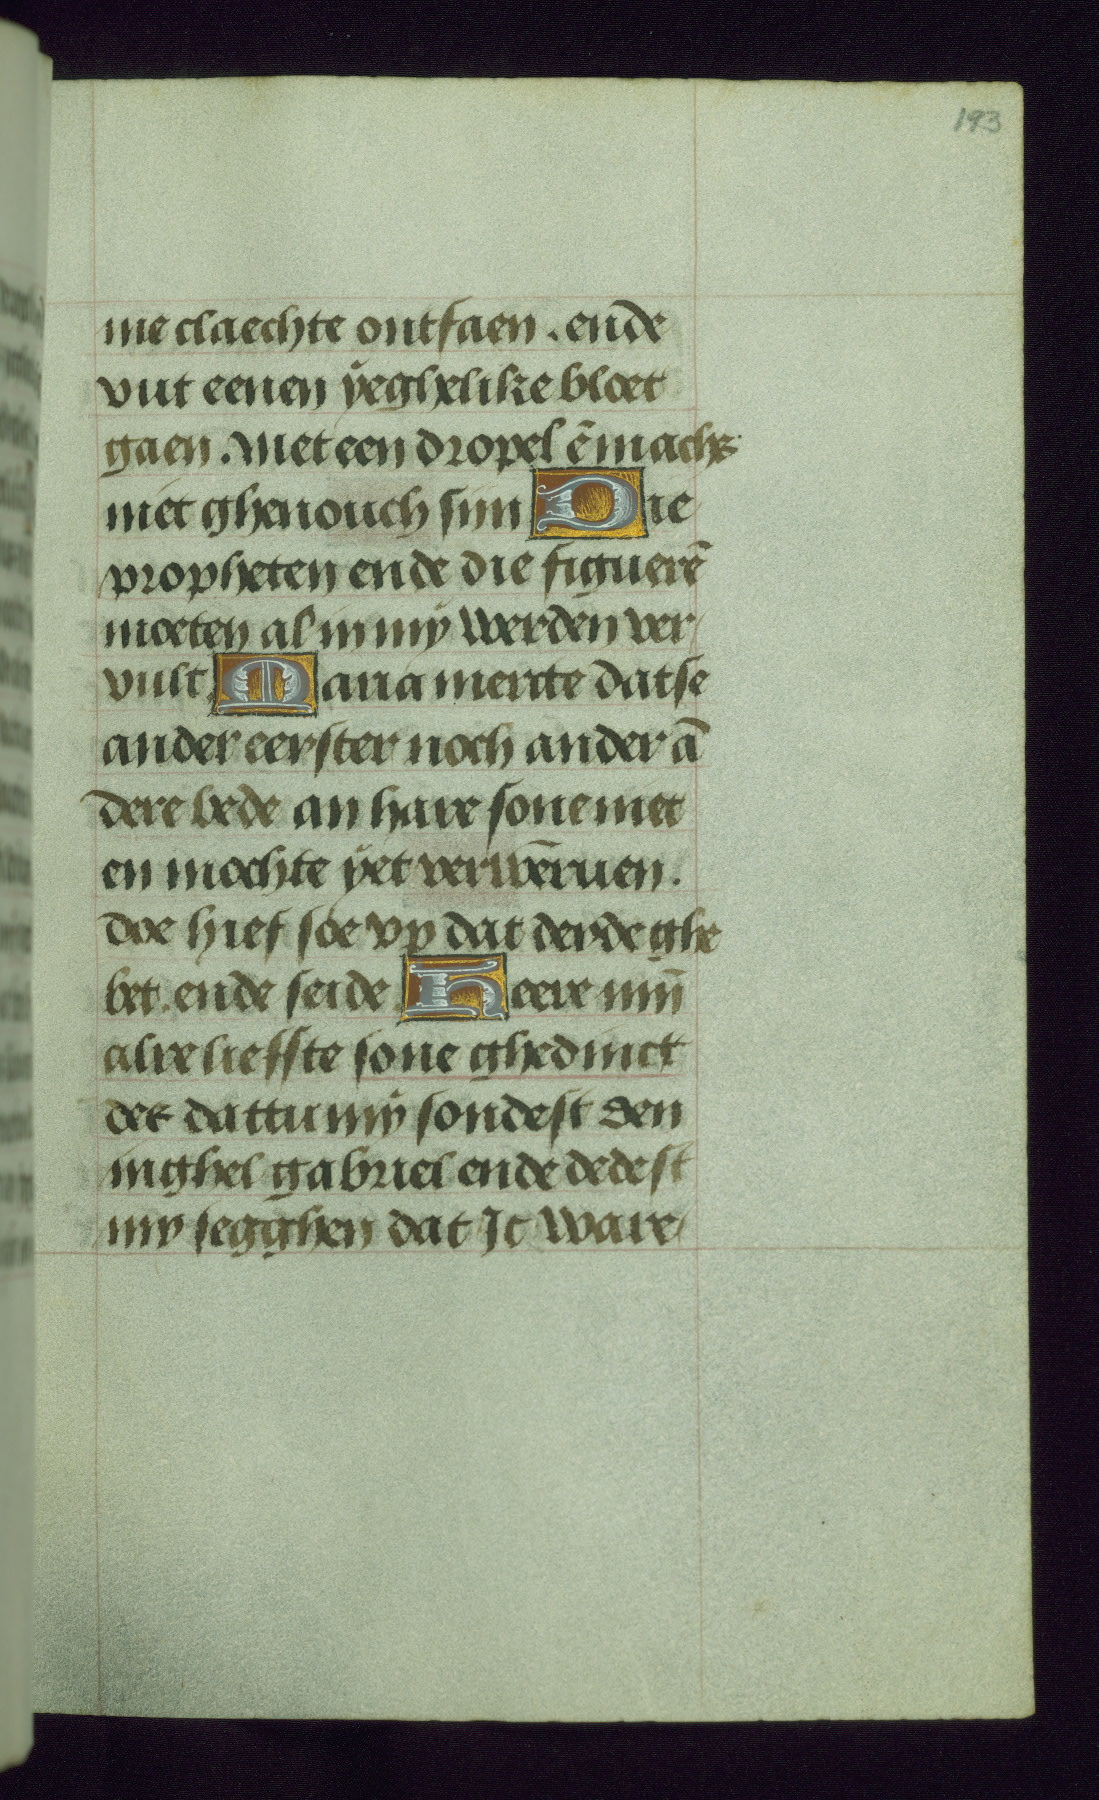 193
me claechte ontfaen . ende
vut eenen ÿeghelike bloet
gaen . Met een dropel ē machs
niet ghenouch sijn Die
propheten ende die figuerē
moeten al in mÿ werden ver
vult Maria mercte datse
ander eerster noch ander ā
dere bede an hare sone niet
en mochte ÿet verwēruen .
doe hief soe vp dat derde ghe
bet . ende seide . Heere mijn̄
alre liefste sone ghedinct
des dattu mÿ sondest den
inghel gabriel ende dedest
my segghen dat Ic ware